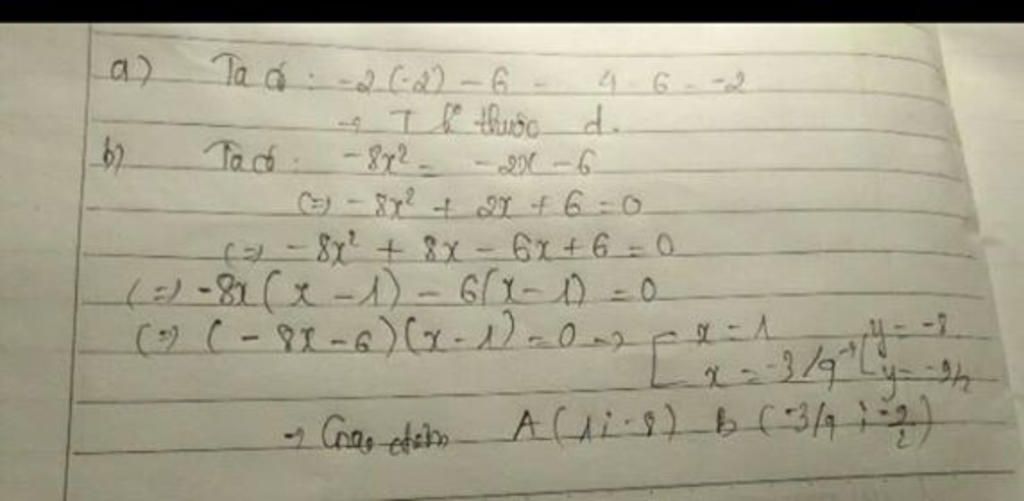 a) Ta có : -2(-2) - 6 = 4 - 6 = -2
→ T k° thuộc d.
b) Ta có : -8x² = -2x - 6
(=) -8x² + 2x + 6 = 0
(=) -8x² + 8x - 6x + 6 = 0
(=) -8x(x - 1) - 6(x - 1) = 0
(=) (-8x - 6)(x - 1) = 0 → [ x = 1 → [ y = -8
x = -3/4 y = -9/2
→ Giao điểm A(1; -8) B(-3/4; -9/2)